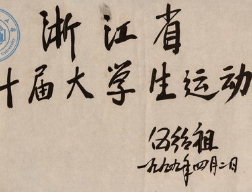 浙江省
十届大学生运动
伍绍祖
一九九九年四月二日